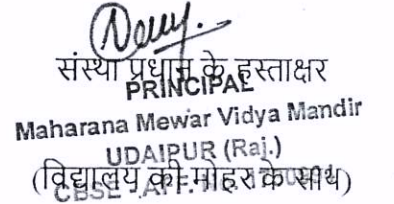 संस्था प्रधान के हस्ताक्षर
PRINCIPAL
Maharana Mewar Vidya Mandir
UDAIPUR (Raj.)
(विद्यालय की मोहर के साथ)
CBSE AFF. No.